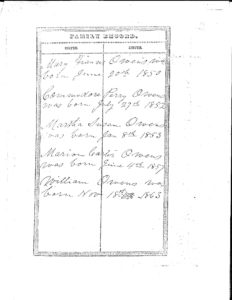 FAMILY RECORD.
BIRTHS. BIRTHS.
Mary Owens was
born June 20th 1850
Commodore Perry Owens
was born July 29th 1852
Martha Susan Owens
was born Jan 8th 1853
Marion Carter Owens
was born June 4th 1857
William Owens was
born Nov 18th 1863